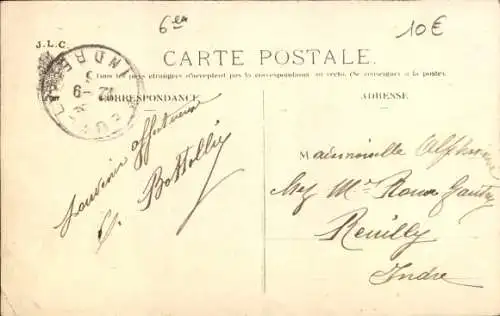 6 es
10€
J.L.C.
CARTE POSTALE.
Tous les pays étrangers n'acceptent pas la correspondance au verso. (Se renseigner à la poste).
CORRESPONDANCE
ADRESSE
INDRE
Souvenir affectueux
Mademoiselle Alphonsine
Chez Mr Roux Gautry
Reuilly
Indre